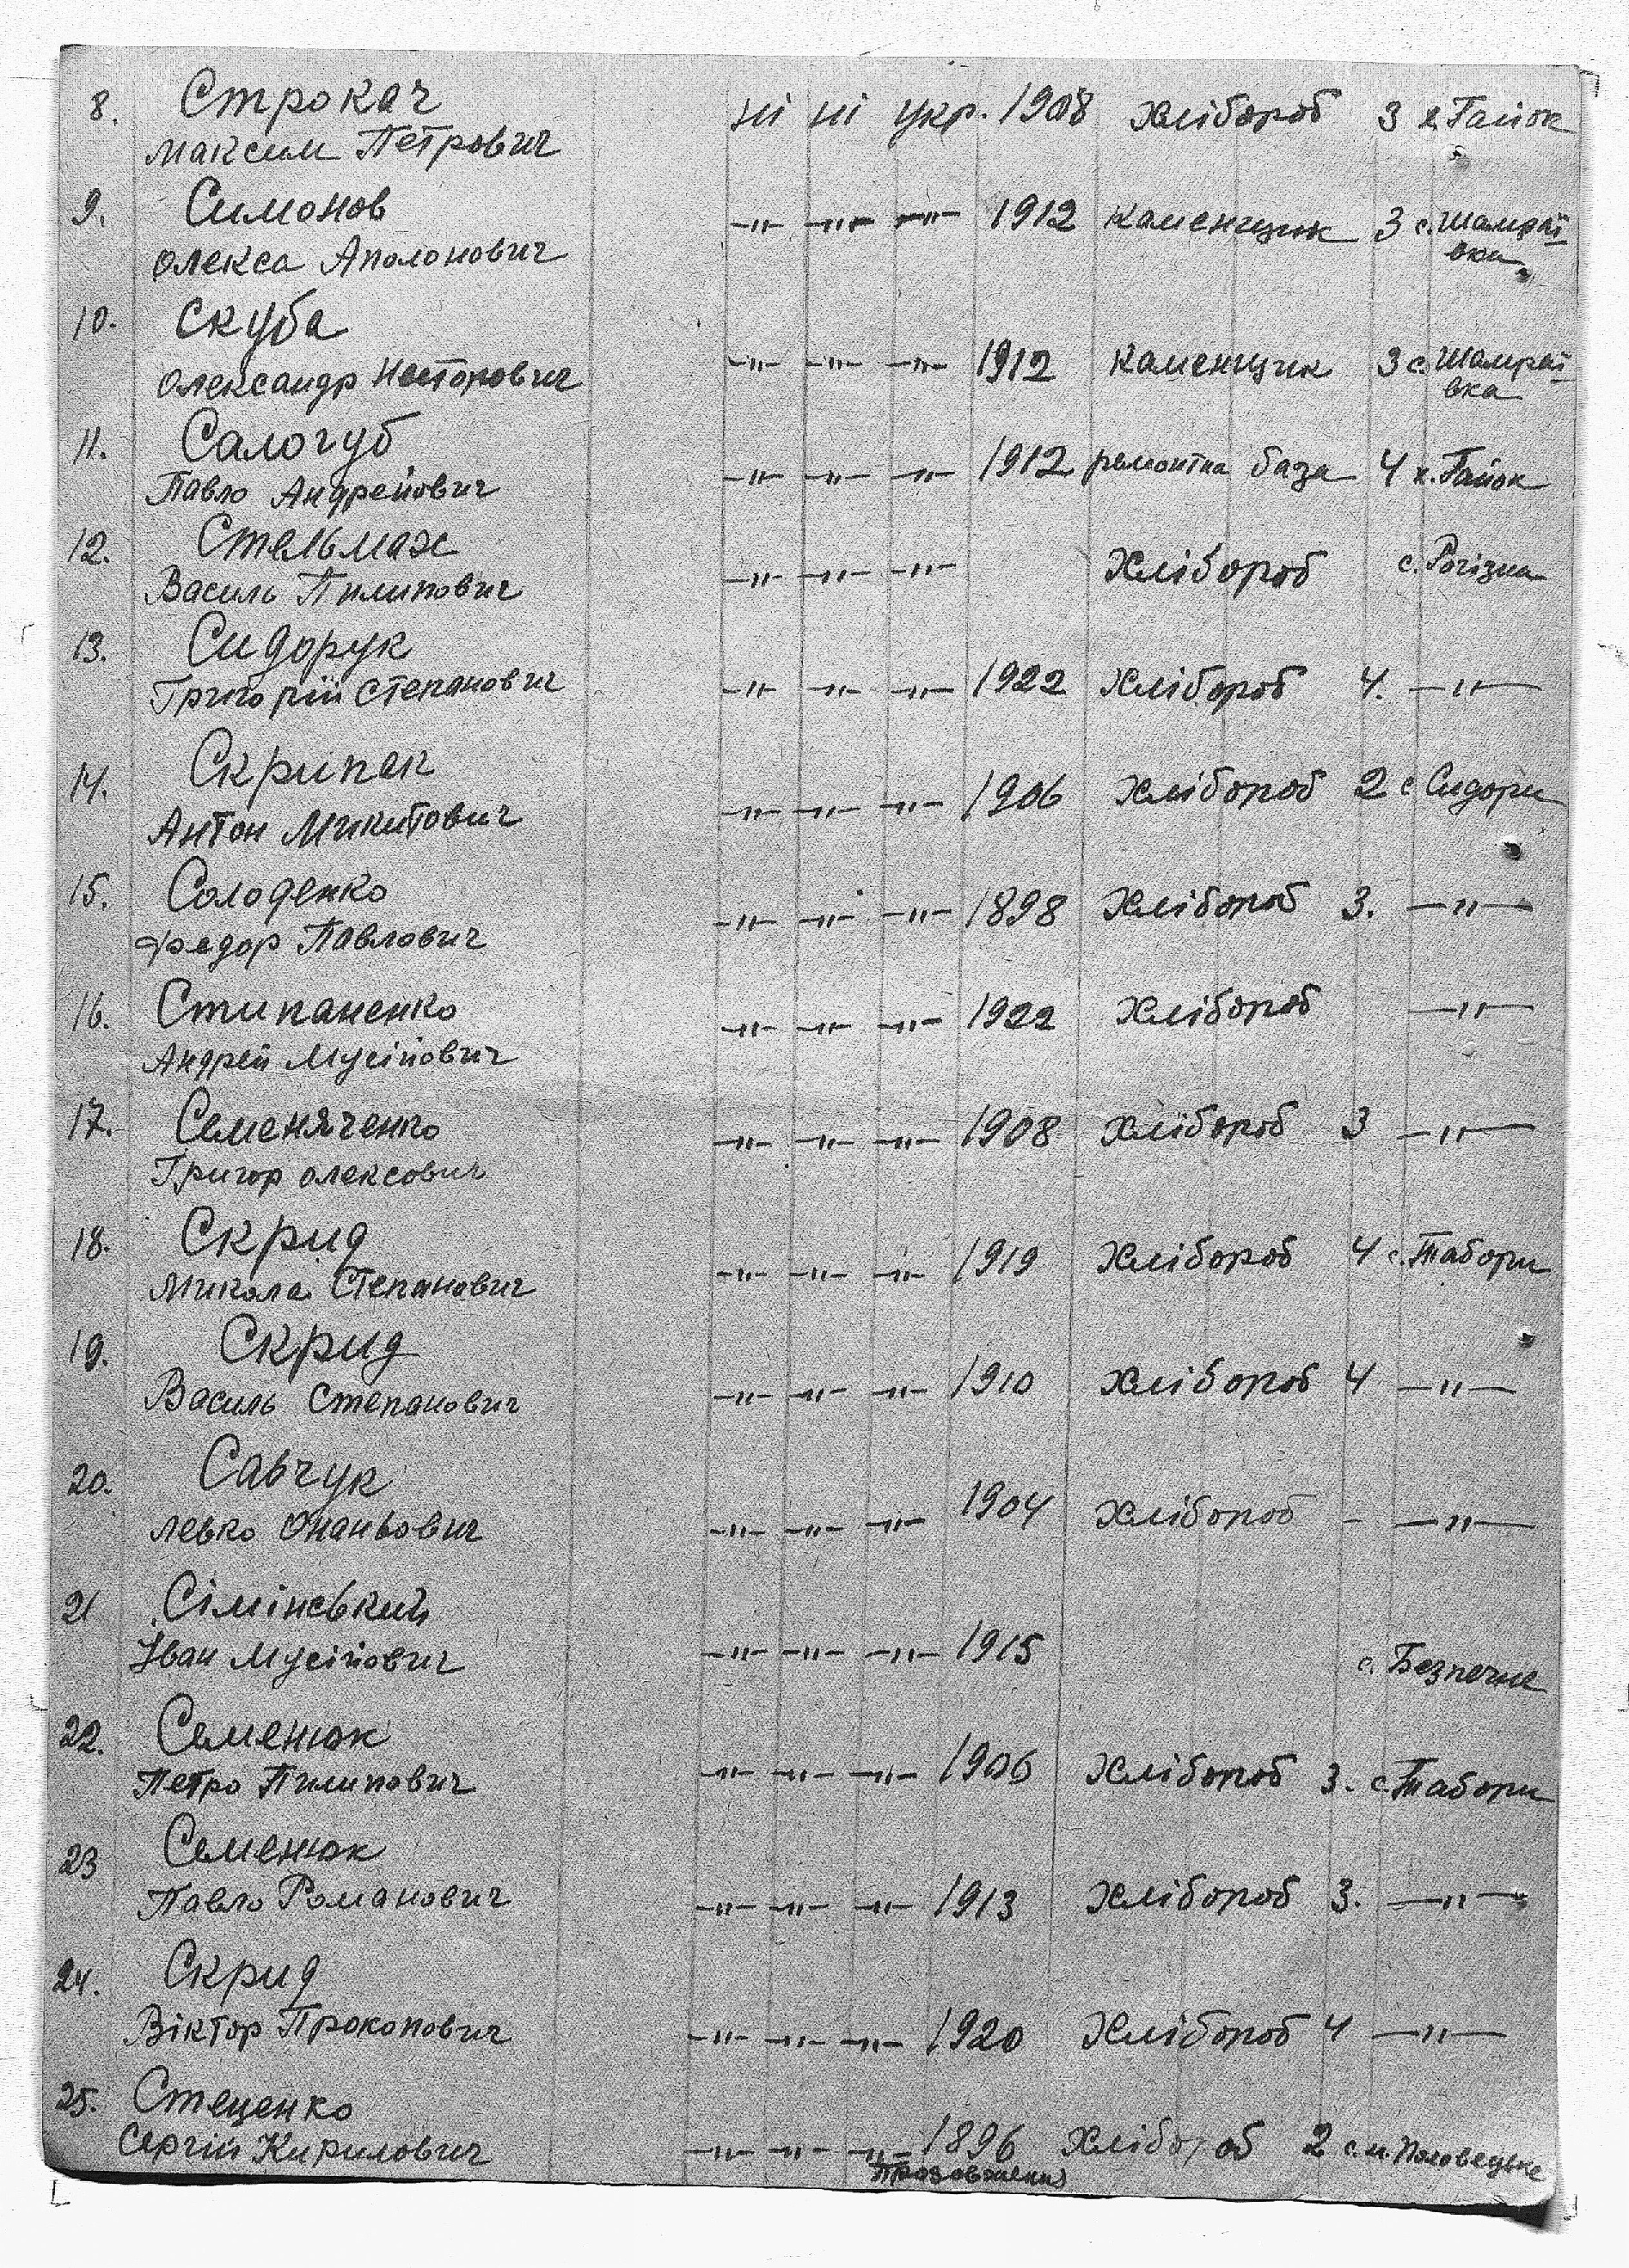 8. Строкач
Максим Петрович ні ні укр. 1908 хлібороб 3 х. Гайок
9. Симонов
Олекса Аполонович —"— —"— —"— 1912 каменщик 3 с. Шамраї-
вка
10. Скуба
Олександр Несторович —"— —"— —"— 1912 каменщик 3 с. Шамраї-
вка
11. Салогуб
Павло Андрейович —"— —"— —"— 1912 ремонтна база 4 х. Гайок
12. Стельмах
Василь Пилипович —"— —"— —"— Хлібороб с. Рогізна
13. Сидорук
Григорій Степанович —"— —"— —"— 1922 Хлібороб 4. —"—
14. Скрипак
Антон Микитович —"— —"— —"— 1906 Хлібороб 2 с Сидори
15. Солоденко
Федор Павлович —"— —"— —"— 1898 Хлібороб 3. —"—
16. Стипаненко
Андрей Мусійович —"— —"— —"— 1922 Хлібороб —"—
17. Семеняченко
Григор Олексович —"— —"— —"— 1908 Хлібороб 3 —"—
18. Скрид
Микола Степанович —"— —"— —"— 1919 Хлібороб 4 с. Табори
19. Скрид
Василь Степанович —"— —"— —"— 1910 Хлібороб 4 —"—
20. Савчук
Левко Онаньович —"— —"— —"— 1904 Хлібороб - —"—
21 Сімінський
Іван Мусійович —"— —"— —"— 1915 с. Безпечне
22. Семенюк
Петро Пилипович —"— —"— —"— 1906 Хлібороб 3. с Табори
23 Семенюк
Павло Романович —"— —"— —"— 1913 Хлібороб 3. —"—
24. Скрид
Віктор Прокопович —"— —"— —"— 1920 Хлібороб 4 —"—
25. Стеценко
Сергій Кирилович —"— —"— —"— 1896 Хлібороб 2 с. м. Половецьке